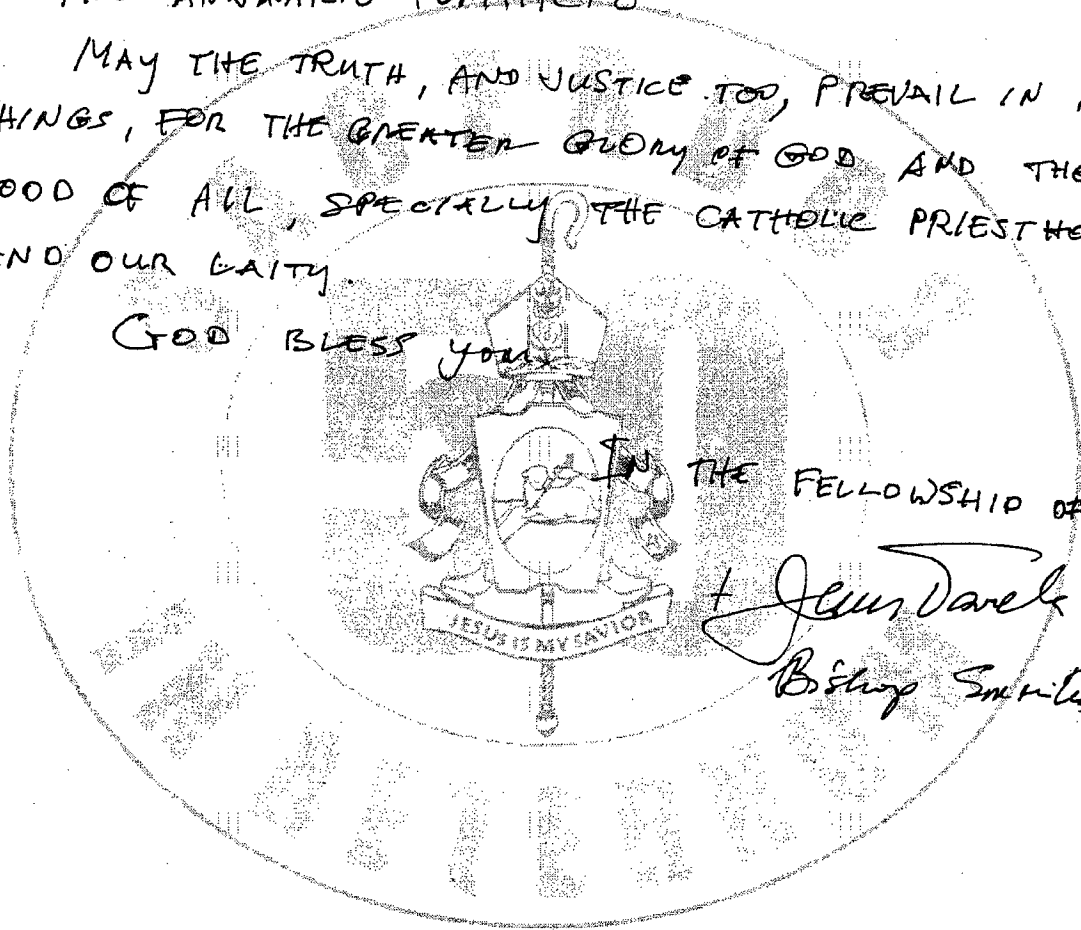 ANNUARIO PONTIFICIO
MAY THE TRUTH, AND JUSTICE TOO, PREVAIL IN
HINGS, FOR THE GREATER GLORY OF GOD AND THE
OOD OF ALL, SPECIALLY THE CATHOLIC PRIESTHO
AND OUR LAITY.
GOD BLESS you.
IN THE FELLOWSHIP OF
JESUS IS MY SAVIOR
Bishop